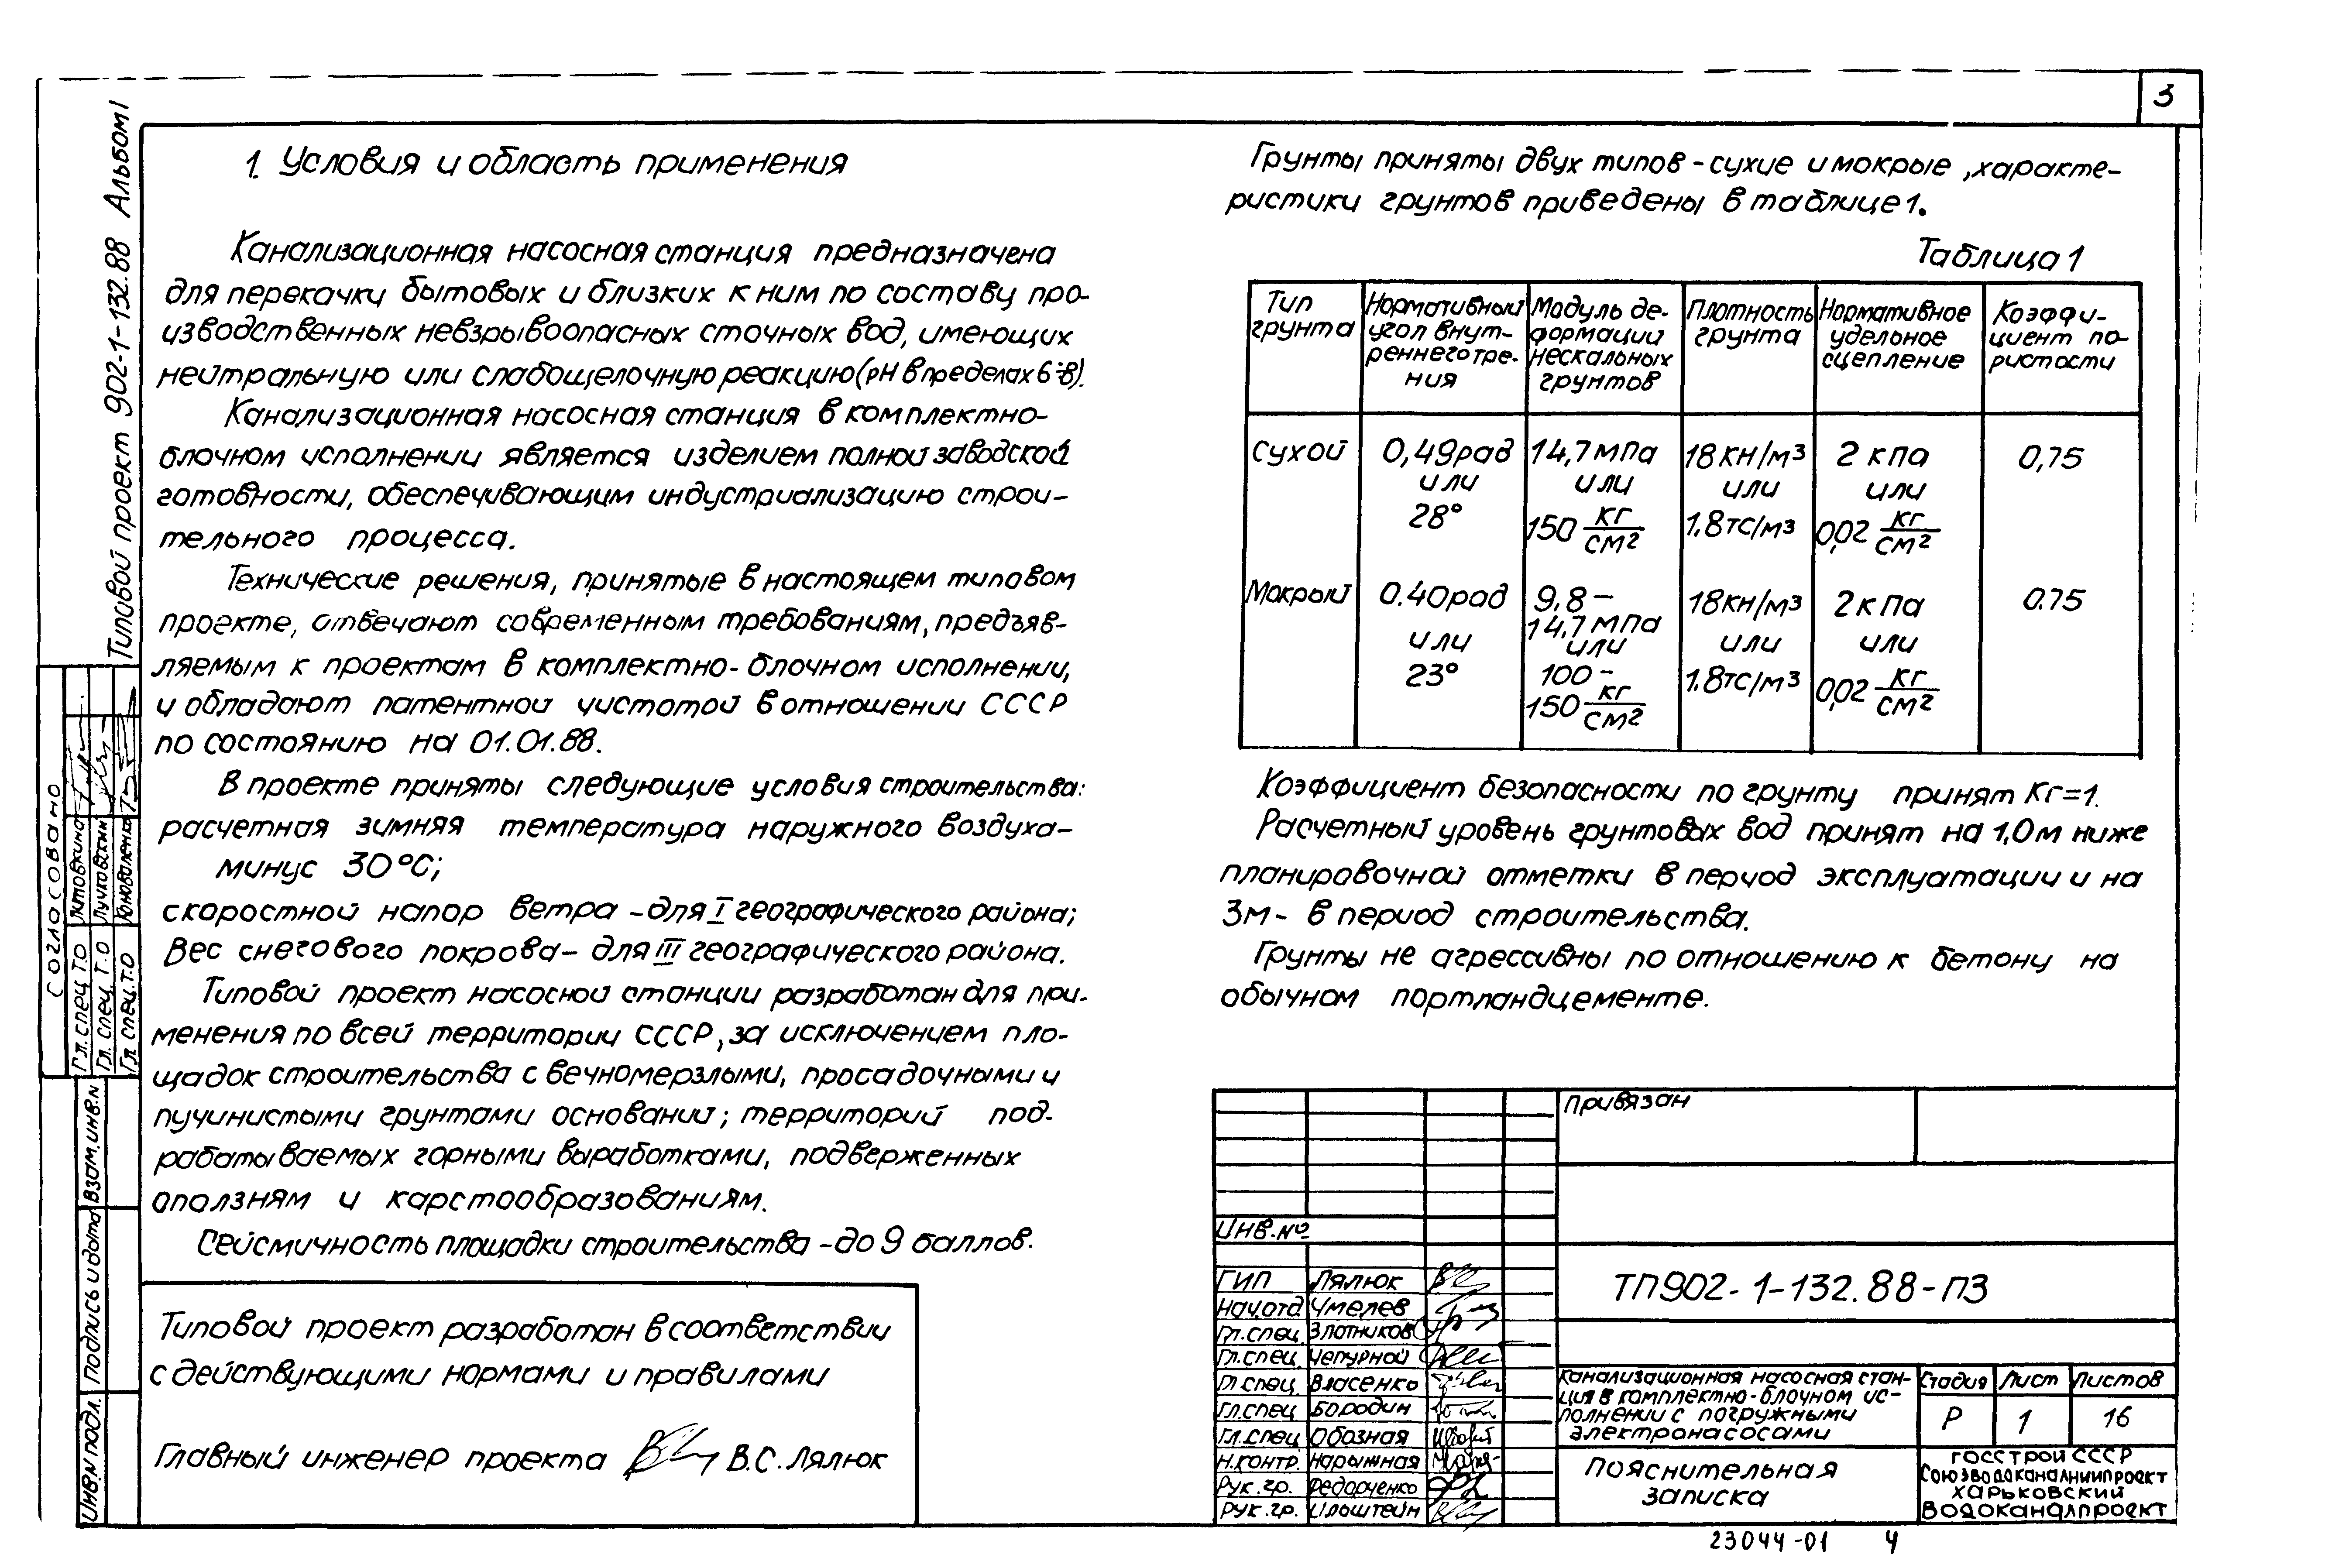 3
Типовой проект 902-1-132.88 Альбом I
1. Условия и область применения
Канализационная насосная станция предназначена
для перекачки бытовых и близких к ним по составу про-
изводственных невзрывоопасных сточных вод, имеющих
нейтральную или слабощелочную реакцию (рН в пределах 6÷8).
Канализационная насосная станция в комплектно-
блочном исполнении является изделием полной заводской
готовности, обеспечивающим индустриализацию строи-
тельного процесса.
Технические решения, принятые в настоящем типовом
проекте, отвечают современным требованиям, предъяв-
ляемым к проектам в комплектно-блочном исполнении,
и обладают патентной чистотой в отношении СССР
по состоянию на 01.01.88.
В проекте приняты следующие условия строительства:
расчетная зимняя температура наружного воздуха-
минус 30°С;
скоростной напор ветра - для I географического района;
Вес снегового покрова - для III географического района.
Типовой проект насосной станции разработан для при-
менения по всей территории СССР, за исключением пло-
щадок строительства с вечномерзлыми, просадочными и
пучинистыми грунтами оснований; территорий под-
рабатываемых горными выработками, подверженных
оползням и карстообразованиям.
Сейсмичность площадки строительства - до 9 баллов.
Типовой проект разработан в соответствии
с действующими нормами и правилами
Главный инженер проекта В.С. Лялюк
Грунты приняты двух типов - сухие и мокрые, характе-
ристики грунтов приведены в таблице 1.
Таблица 1
Тип грунта | Нормативный угол внут-реннего тре-ния | Модуль де-формации нескальных грунтов | Плотность грунта | Нормативное удельное сцепление | Коэффи-циент по-ристости
Сухой | 0,49рад или 28° | 14,7 МПа или 150 кг/см² | 18 кН/м3 или 1.8тс/м3 | 2 кПа или 0,02 кг/см² | 0,75
Мокрый | 0.40рад или 23° | 9,8 - 14,7 МПа или 100 - 150 кг/см² | 18кн/м3 или 1.8тс/м3 | 2 кПа или 0,02 кг/см² | 0.75
Коэффициент безопасности по грунту принят Кг=1.
Расчетный уровень грунтовых вод принят на 1,0м ниже
планировочной отметки в период эксплуатации и на
3м - в период строительства.
Грунты не агрессивны по отношению к бетону на
обычном портландцементе.
Согласовано
Гл. спец Т.О Литовкина
Гл. спец. Т.О
Гл спец. Т.О Коноваленко
Взам. инв. N
Подпись и дата
Инв. N подл.
Привязан
Инв. №
ГИП Лялюк
Нач. отд Умелев
Гл. спец. Злотников
Гл. спец. Чепурной
Гл спец. Власенко
Гл. спец Бородин
Гл. спец Обозная
Н. контр. Нарыжная
Рук. гр. Федорченко
Рук. гр. Ильштейн
ТП902-1-132.88-ПЗ
Канализационная насосная стан-
ция в комплектно-блочном ис-
полнении с погружными
электронасосами
Стадия Лист Листов
Р 1 16
Пояснительная
записка
Госстрой СССР
Союзводоканалниипроект
Харьковский
Водоканалпроект
23044-01 4